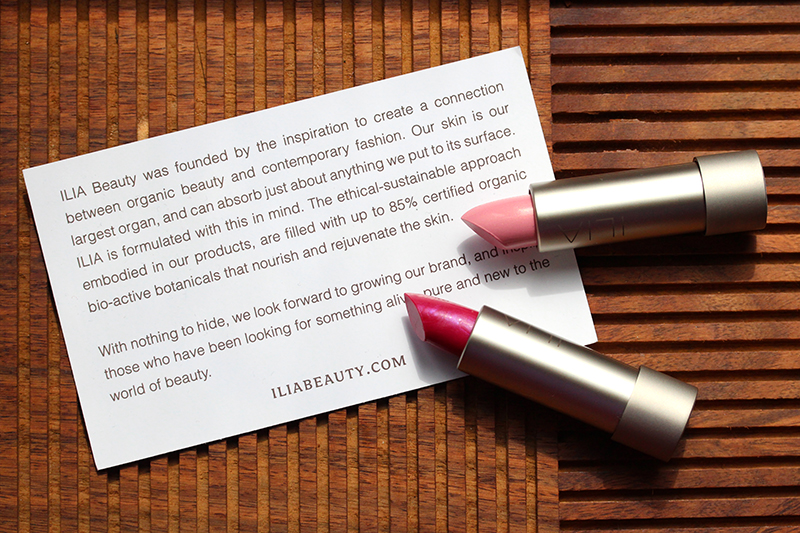 ILIA Beauty was founded by the inspiration to create a connection
between organic beauty and contemporary fashion. Our skin is our
largest organ, and can absorb just about anything we put to its surface.
ILIA is formulated with this in mind. The ethical-sustainable approach
embodied in our products, are filled with up to 85% certified organic
bio-active botanicals that nourish and rejuvenate the skin.
With nothing to hide, we look forward to growing our brand, and
those who have been looking for something alive, pure and new to the
world of beauty.
ILIABEAUTY.COM
ILIA